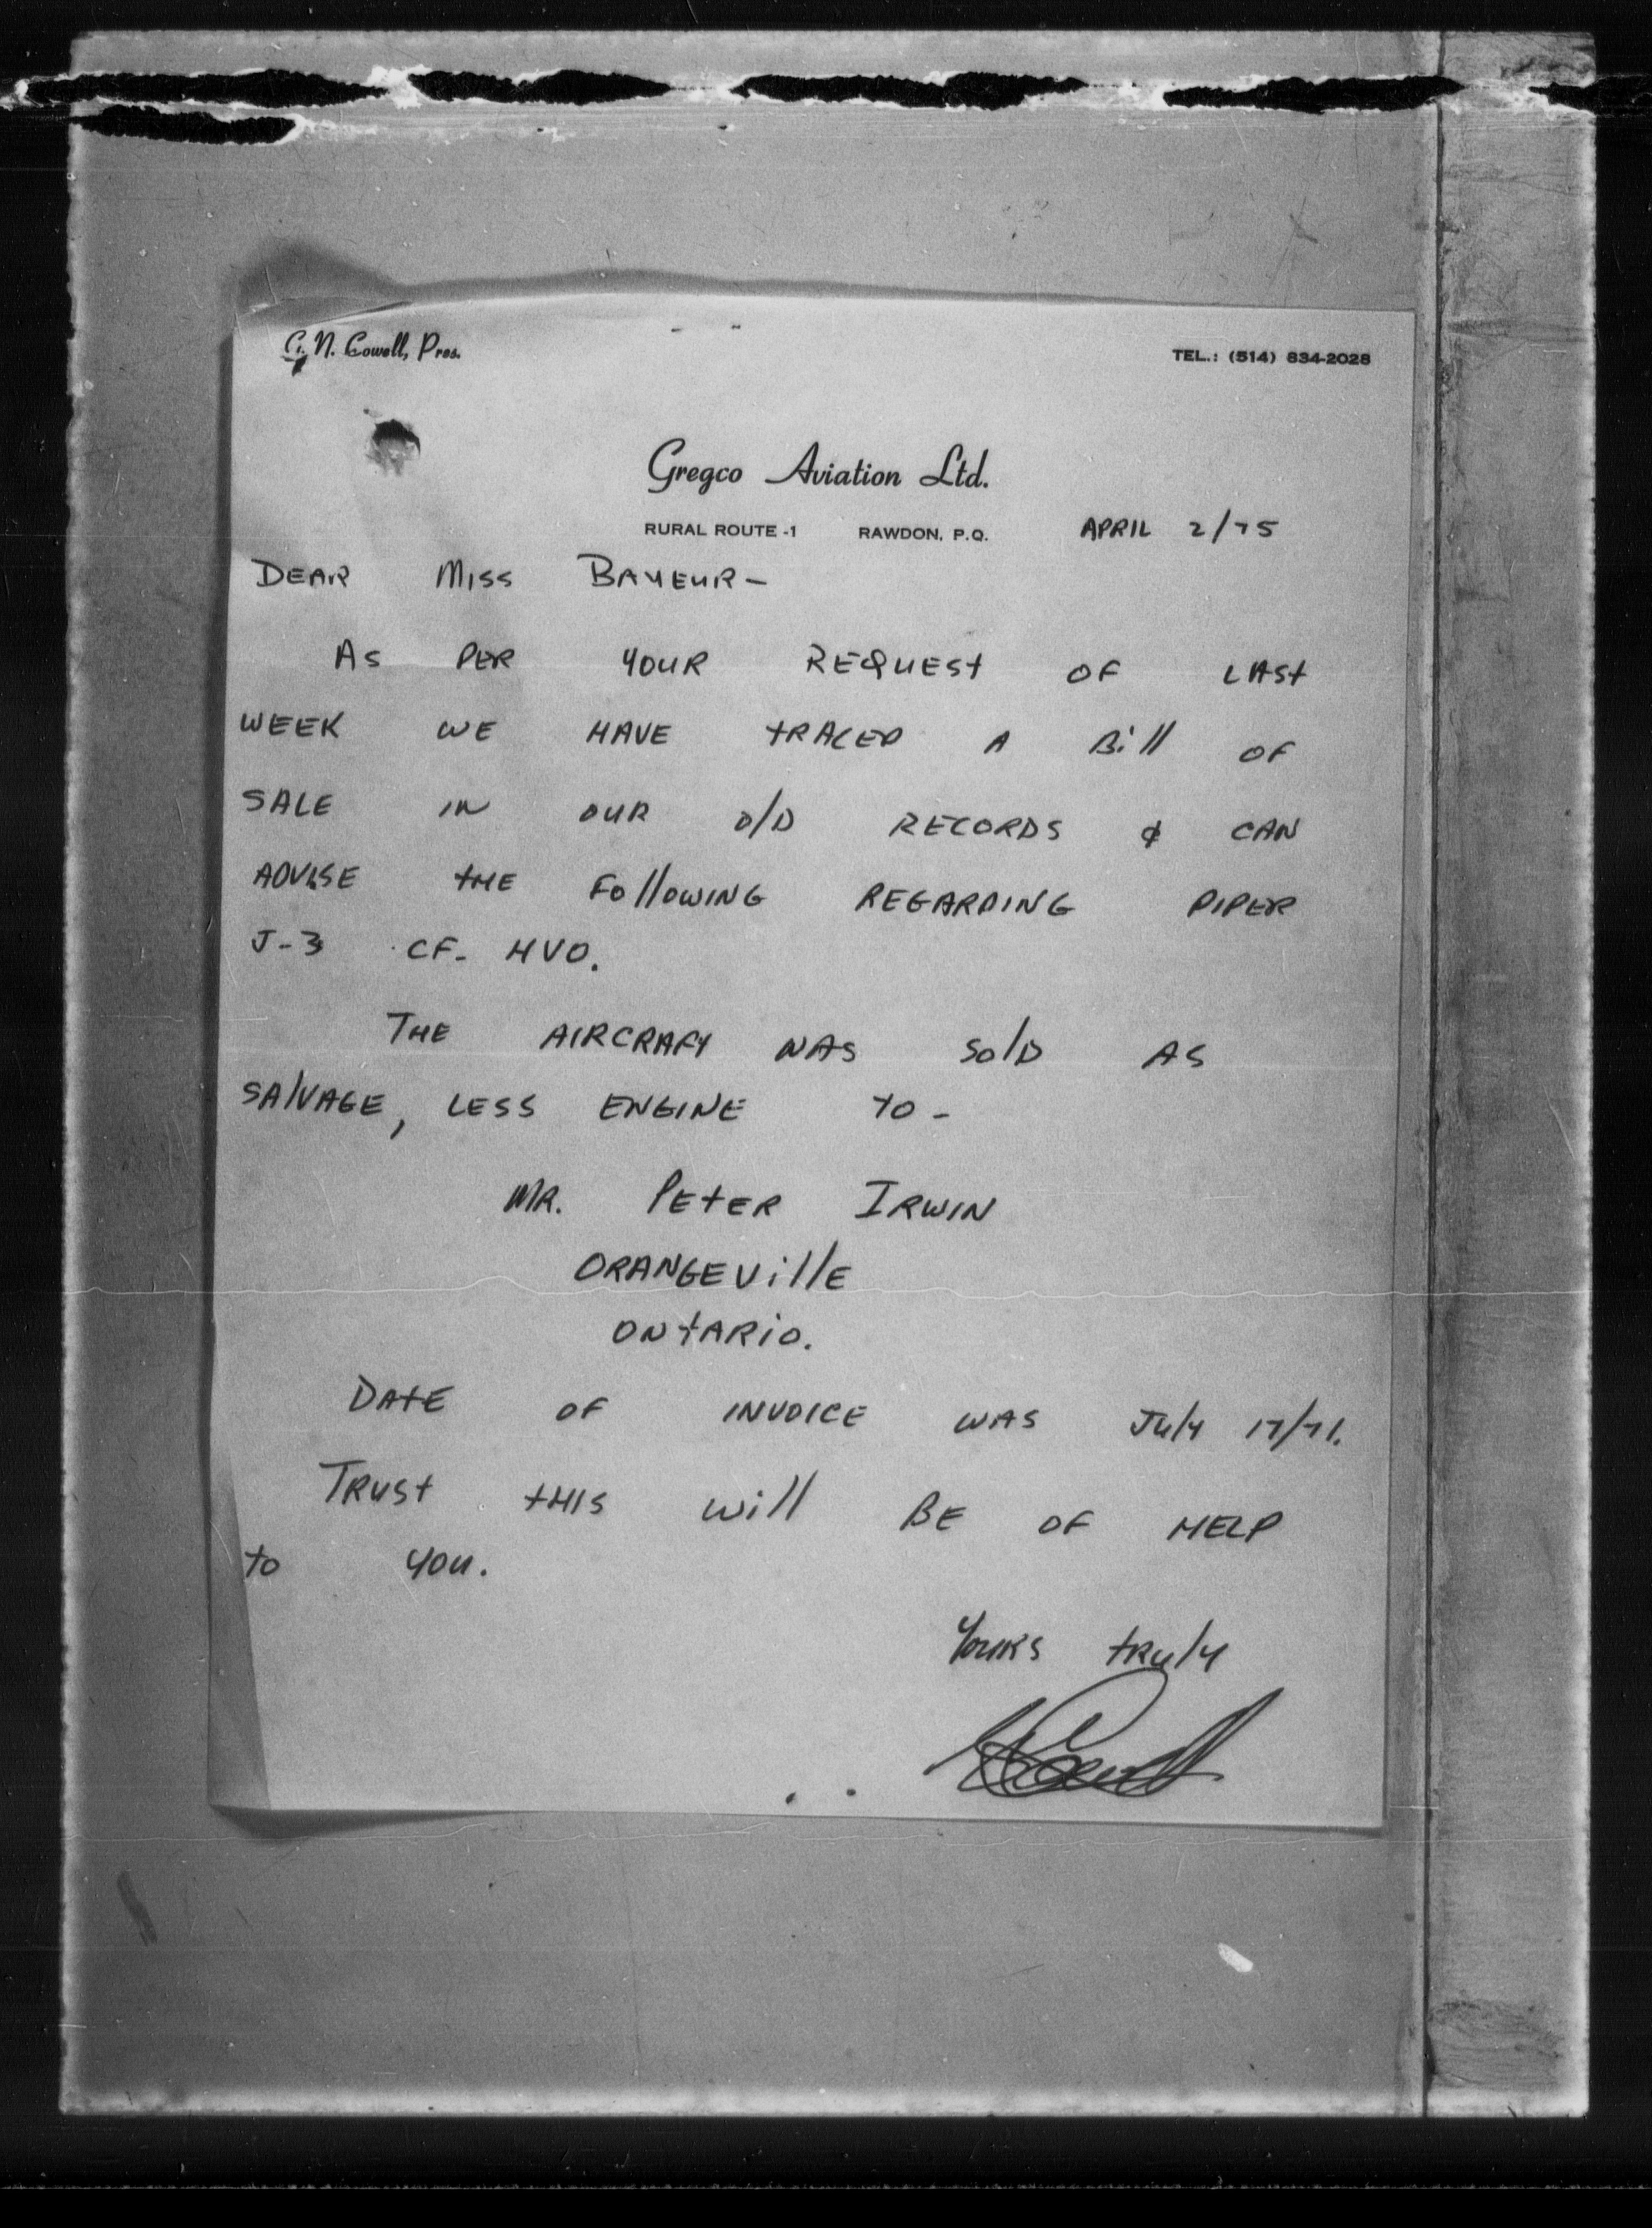 G. N. Cowell, Pres.
TEL.: (514) 834-2028
Gregco Aviation Ltd.
RURAL ROUTE -1 RAWDON, P.Q. APRIL 2/75
DEAR MISS BAYEUR-
AS PER YOUR REQUEST OF LAST
WEEK WE HAVE TRACED A Bill OF
SALE IN OUR O/D RECORDS & CAN
ADVISE THE FOllOWING REGARDING PIPER
J-3 CF-HVO.
THE AIRCRAFT WAS SOlD AS
SAlVAGE, LESS ENGINE TO-
MR. PETER IRWIN
ORANGEVillE
ONTARiO.
DATE OF INVOICE WAS JUlY 17/71.
TRUST THIS Will BE OF HELP
TO YOU.
YOURS TRUlY